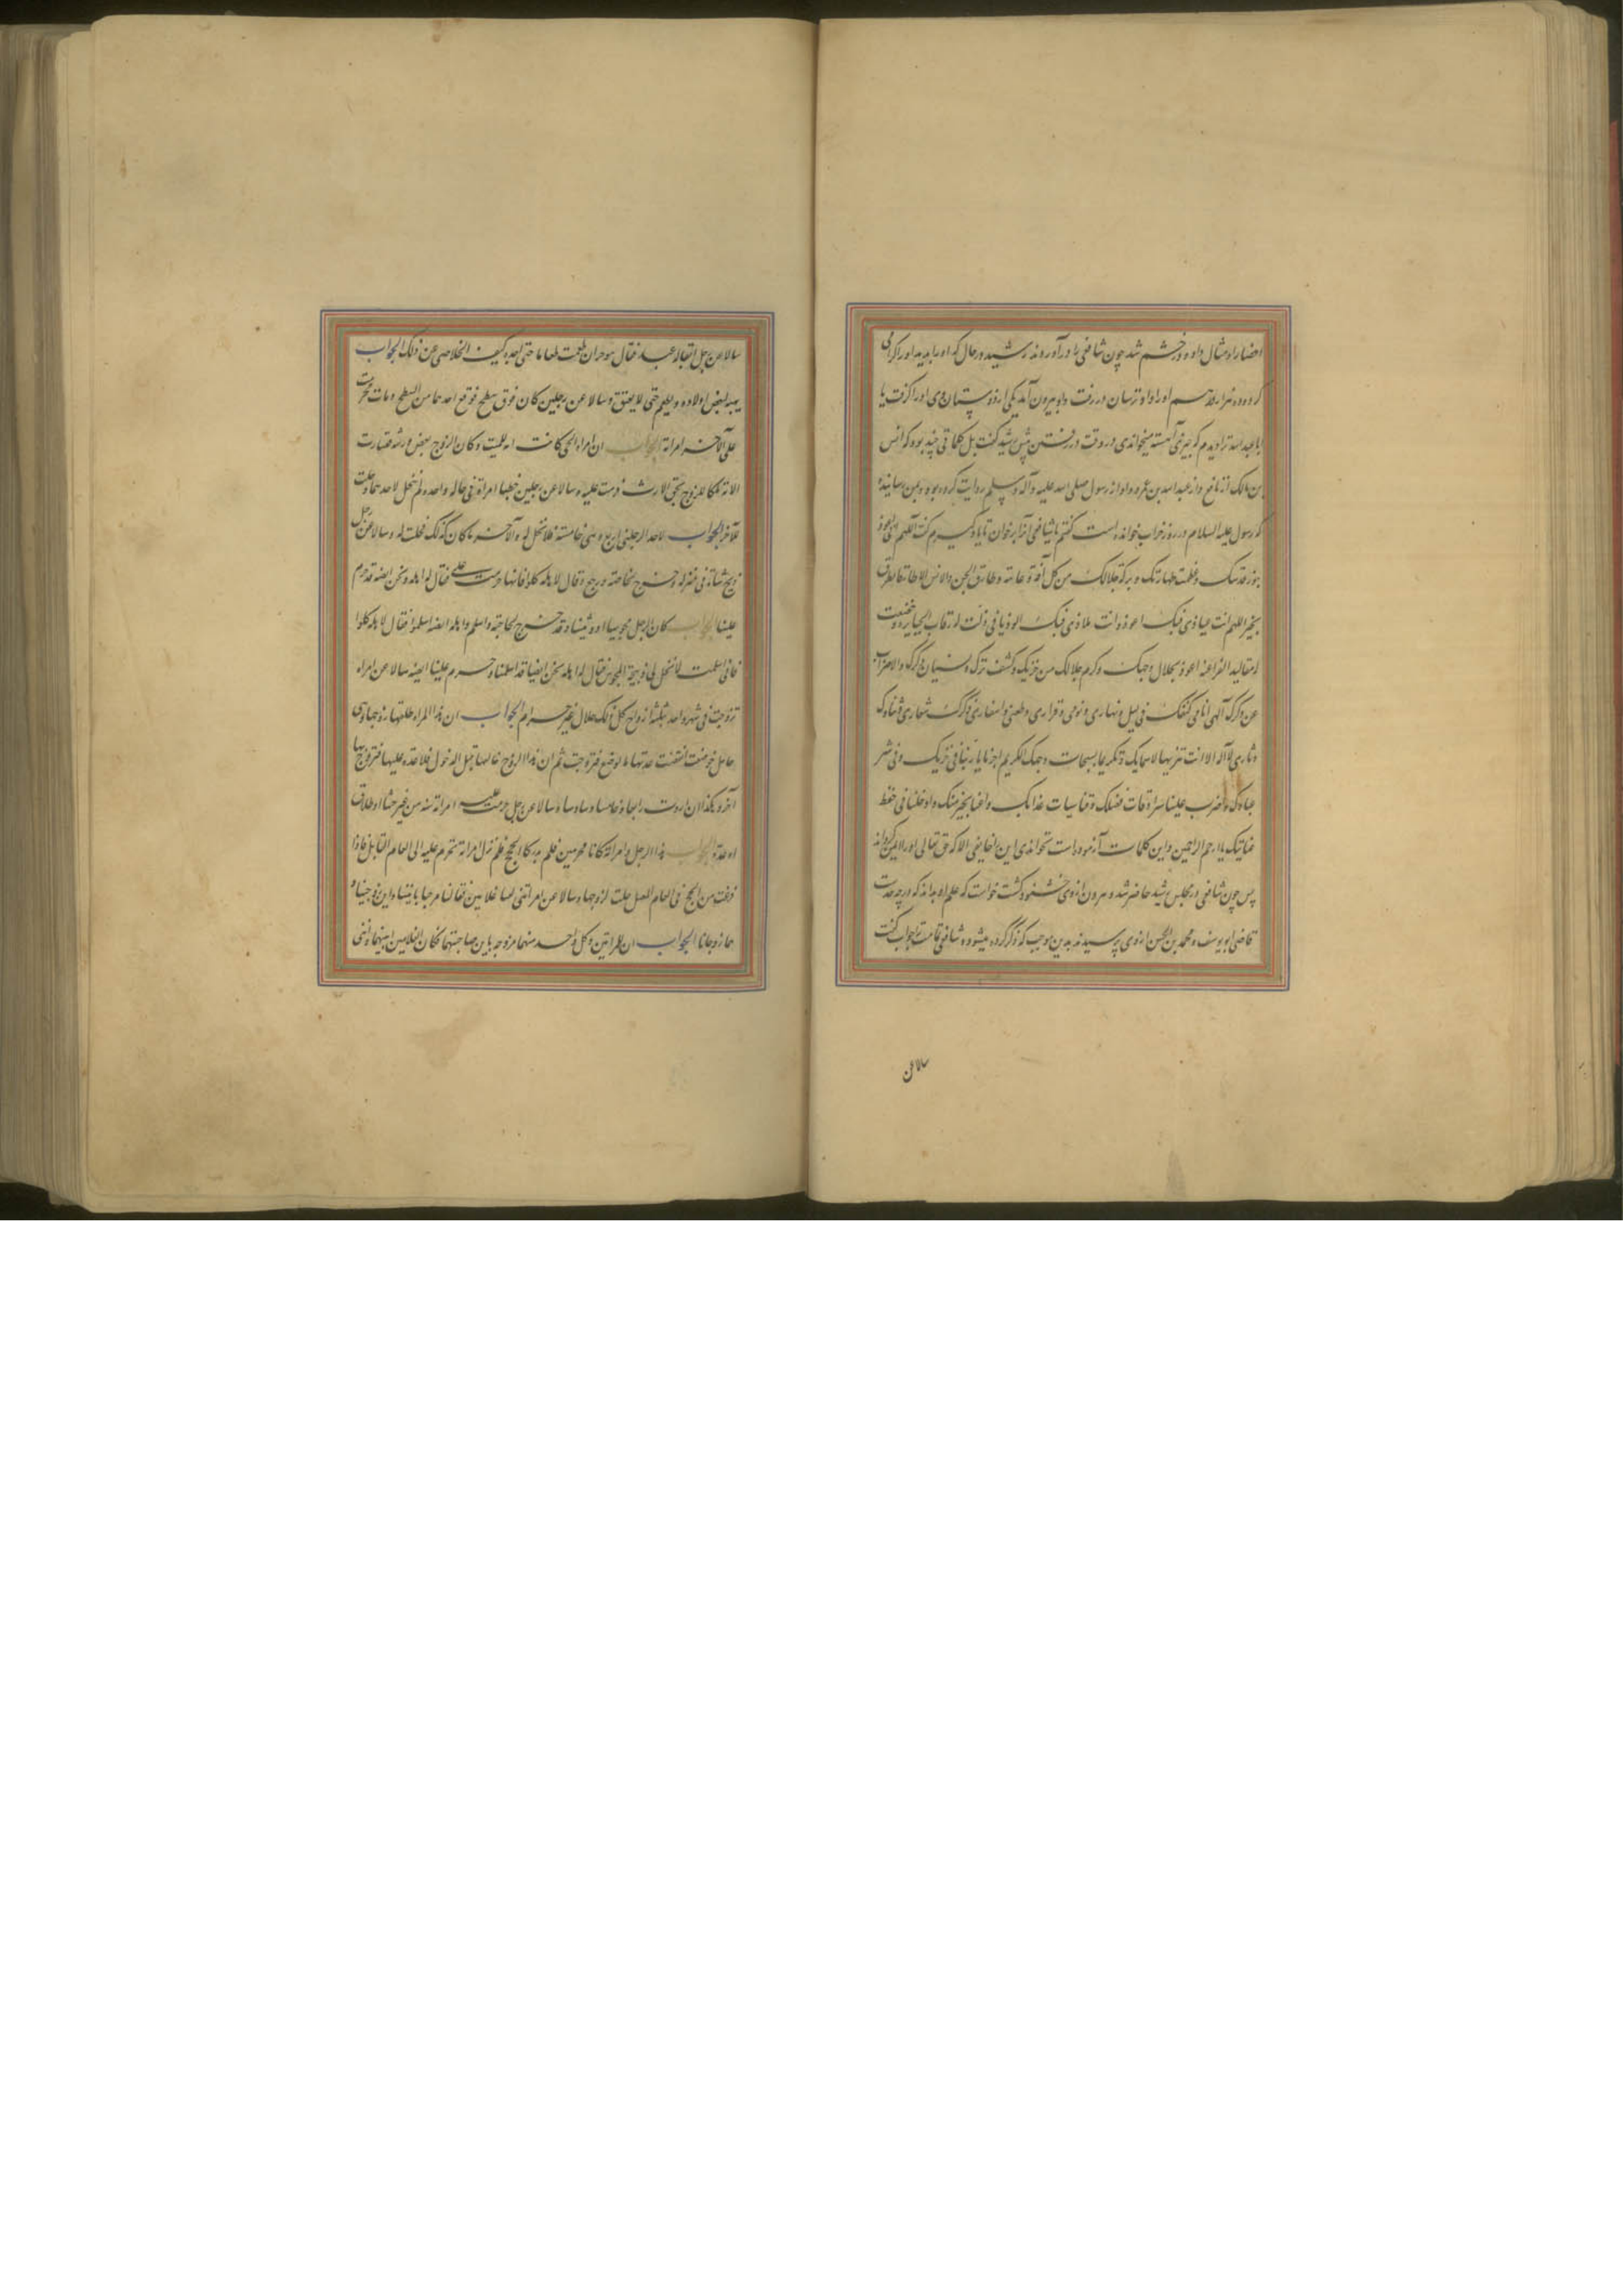 احضار او مثال داد و در خشم شد چون شافعی را در آوردند رشید در حال که او را بدید او را کرامی
کرد و ده هزار درهم او را داد و ترسان در رفت و او بیرون آمد یکی از دوستان وی او را گفت یا
ابا عبد الله ترا دیدم که چیزی آهسته میخواندی در وقت در رفتن پیش رشید گفت بل کلماتی چند بود که انس
بن مالک از نافع و از عبد الله بن عمر و او از رسول صلی الله علیه و آله وسلم روایت کرده بود و بمن رسانیده
که رسول علیه السلام در روز احزاب خوانده است گفتم یا شافعی آنرا بر خوان تا یاد گیرم گفت اللهم انی اعوذ
بنور قدسک و عظمت طهارتک و برکة جلالک من کل آفة و عاهة و طارق الجن و الانس الا طارقا یطرق
بخیر اللهم انت عیاذی فبک اعوذ و انت ملاذی فبک الوذ یا من ذلت له رقاب الجبابرة و خضعت
له مقالید الفراعنة اعوذ بجلال وجهک و کرم جلالک من خزیک و کشف سترک و نسیان ذکرک و الاضراب
عن ذکرک الهی انا فی کنفک فی لیلی و نهاری و نومی و قراری و ظعنی و اسفاری ذکرک شعاری و ثناءک
دثاری لا اله الا انت تنزیها لاسمایک و تکریما لسبحات وجهک الکریم اجرنا یا ربنا من خزیک و من شر
عبادک و اضرب علینا سرادقات فضلک و قنا سیات عذابک و اغننا بخیر منک و ادخلنا فی حفظ
عنایتک یا ارحم الراحمین و این کلمات آزموده است نخواندی این را خایفی الا که حق تعالی او را ایمن گرداند
پس چون شافعی در مجلس رشید حاضر شد و هرون از وی خشنود گشت خواست که علم او بداند که در چه حدست
قاضی ابو یوسف و محمد بن الحسن از وی پرسیدند بدین موجب که ذکر کرده میشود و شافعی تمامت را جواب گفت
سالا عن
سالا عن رجل ابق له عبد فقال هو حر ان طعمت طعاما حتی اجده کیف الخلاص عن ذلک الجواب
یهبه لبعض اولاده و یطعم حتی لا یعتق و سالا عن رجلین کان فوق سطح فوقع احدهما من السطح و مات فحرمت
علی الآخر امراته الجواب ان امراة الحی کانت امة للمیت و کان الزوج بعض ورثته فصارت
الامة ملکا للزوج بحق الارث فحرمت علیه و سالا عن رجلین خطبا امراة فی حالة واحدة و لم تحل لاحدهما و حلت
للآخر الجواب لاحد الرجلین اربع و هی خامسة فلا تحل له و الآخر ما کان کذلک فحلت له و سالا عن رجل
ذبح شاة فی منزله و خرج لحاجته و رجع و قال لاهله کلوا فانها حرمت علی فقال له اهله و نحن ایضا قد حرم
علینا الجواب کان الرجل مجوسیا او وثنیا و قد خرج لحاجته و اسلم و اهله ایضا اسلموا فقال لاهله کلوا
فانی اسلمت لا تحل لی ذبیحة المجوس فقال له اهله نحن ایضا قد اسلمنا و حرم علینا ایضا سالا عن امراة
تزوجت فی شهر واحد بثلثة ازواج کل ذلک حلال غیر حرام الجواب ان هذا المراة طلقها زوجها و هی
حامل فوضعت انقضت عدتها بالوضع فتزوجت ثم ان هذا الزوج خالعها قبل الدخول فلا عدة علیها فتزوج بها
آخر و هکذا ان اردت رابعا و خامسا و سادسا و سالا عن رجل حرمت علیه امراته سنة من غیر حنث او طلاق
او عدة الجواب هذا الرجل و امراته کانا محرمین فلم یدرکا الحج فلم تزل امراته تحرم علیه الی العام القابل فاذا
فرغت من الحج فی العام المقبل حلت لزوجها و سالا عن امراتین لقیتا غلامین فقالتا مرحبا بابنینا و ابنی زوجینا و
هما زوجانا الجواب ان للمراتین و کل واحد منهما مزوجة بابن صاحبتها فکان الغلامین ابنیهما و ابنی